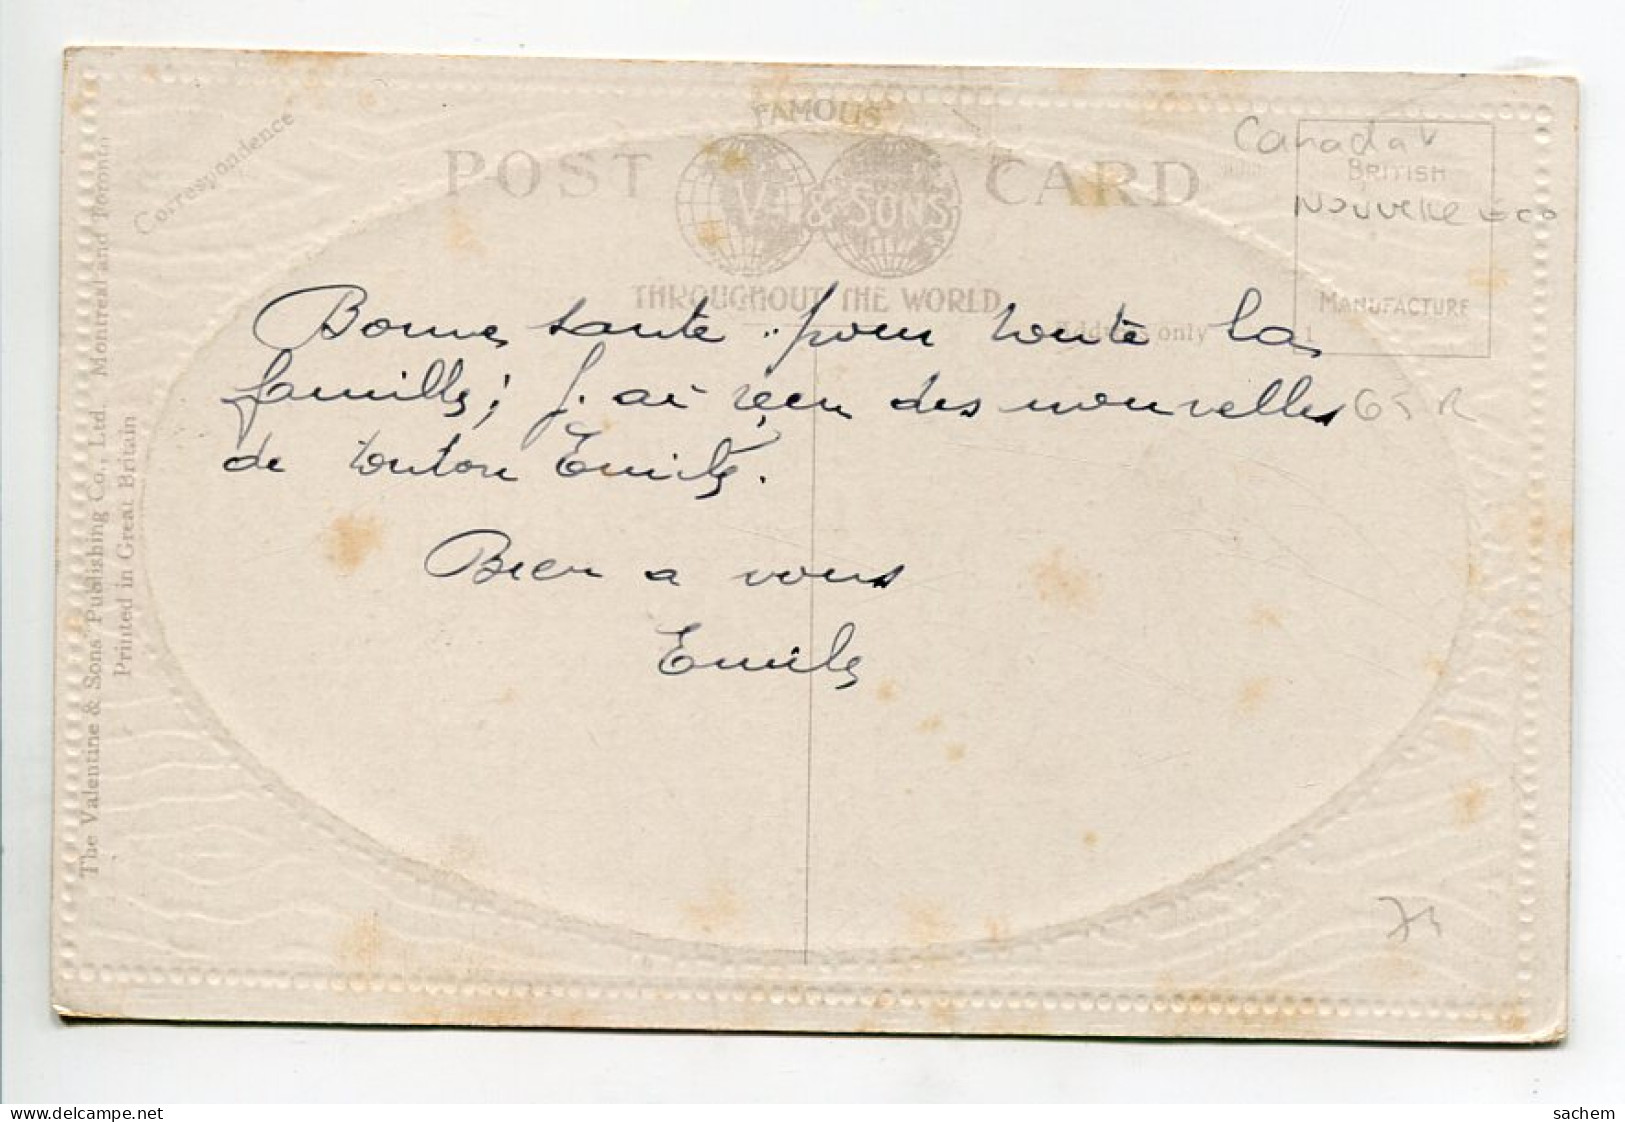 FAMOUS
POST CARD
V. & SONS
THROUGHOUT THE WORLD
Correspondence
Address only
BRITISH
MANUFACTURE
Canada
Nouvelle Eco
Bonne sante pour toute la
famille; J. ai reçu des nouvelles
de tonton Emile.
Bien a vous
Emile
The Valentine & Sons' Publishing Co., Ltd. Montreal and Toronto
Printed in Great Britain
sachem